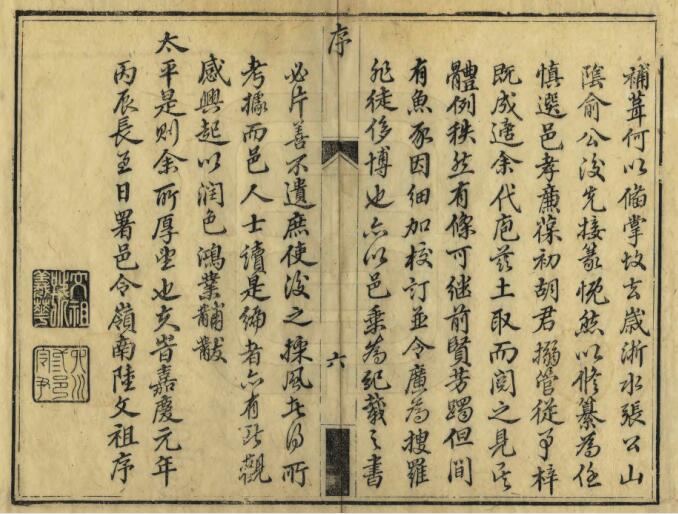 補葺何以備掌故去歲浙水張公山
陰俞公後先接篆慨然以修纂為任
慎選邑孝廉葆初胡君搦管從事梓
既成適余代庖茲土取而閱之見其
體例秩然有條可繼前賢芳躅但間
有魚豕因細加校訂並令廣為搜羅
非徒侈博也亦以邑乘為紀載之書
序
六
必片善不遺庶使後之採風者得所
考據而邑人士續是編者亦有所觀
感興起以潤色鴻業黼黻
太平是則余所厚望也夫旹嘉慶元年
丙辰長至日署邑令嶺南陸文祖序